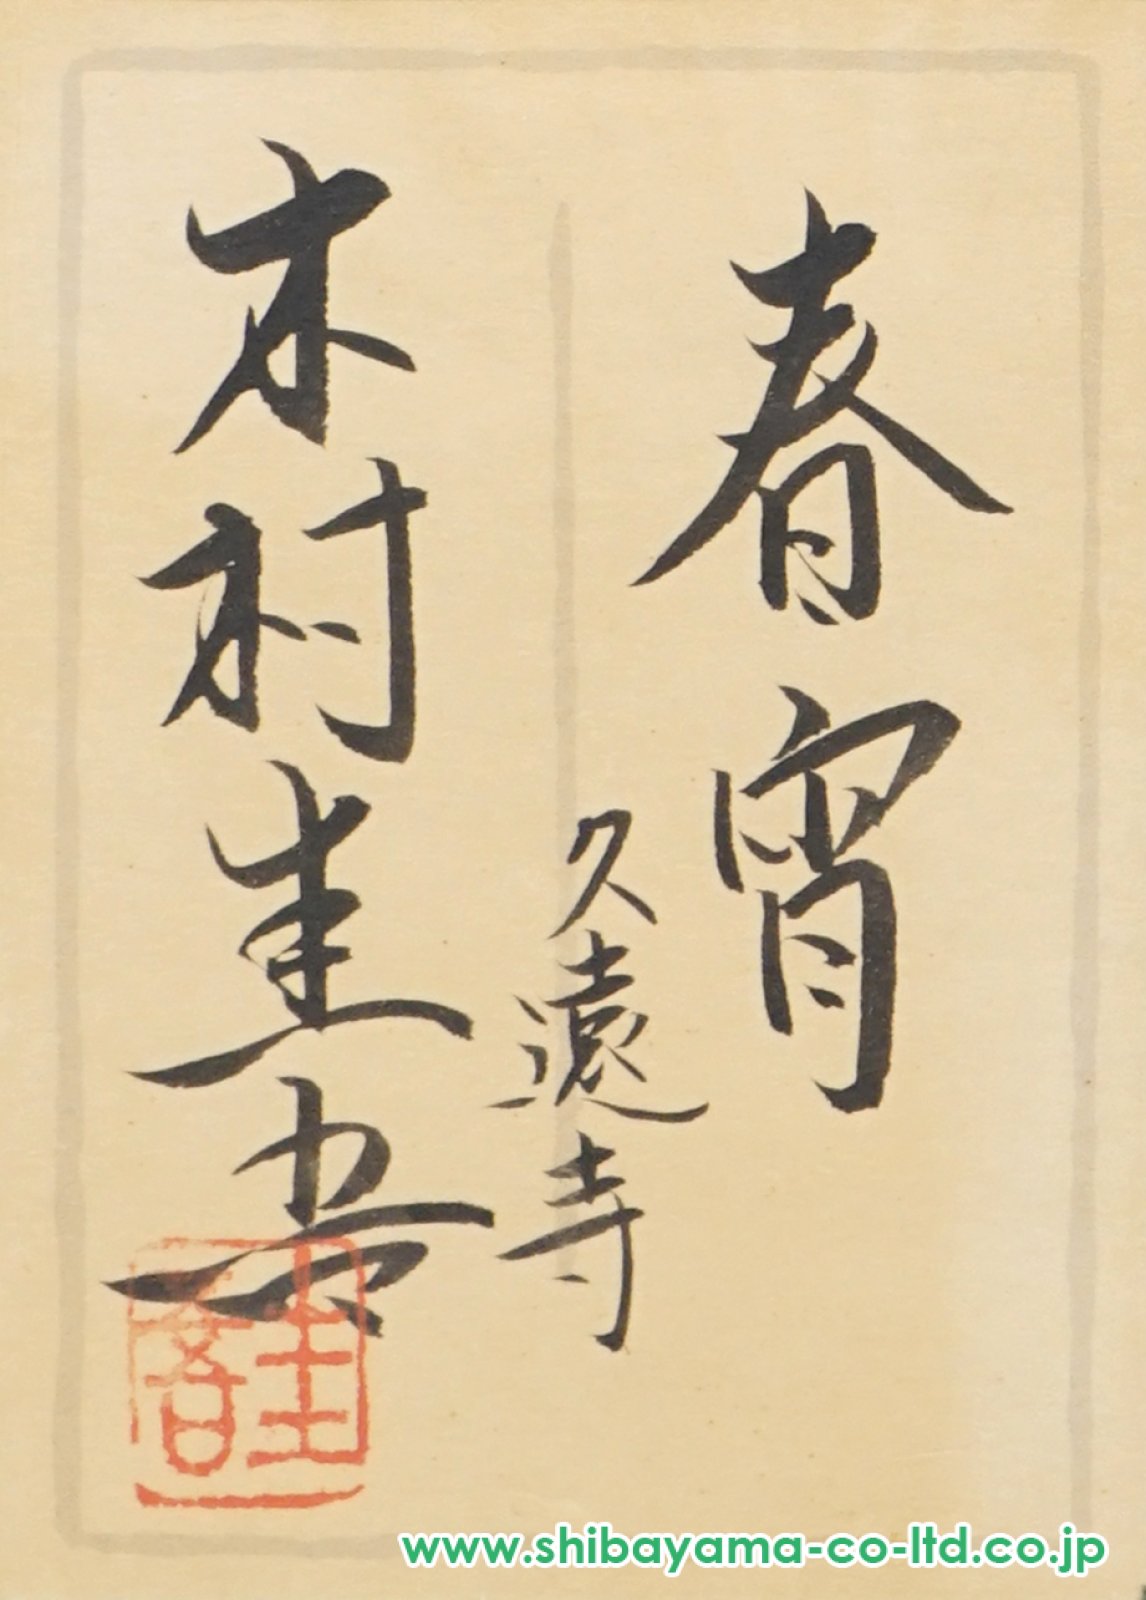 春宵
久遠寺
木村圭吾
圭吾
www.shibayama-co-ltd.co.jp